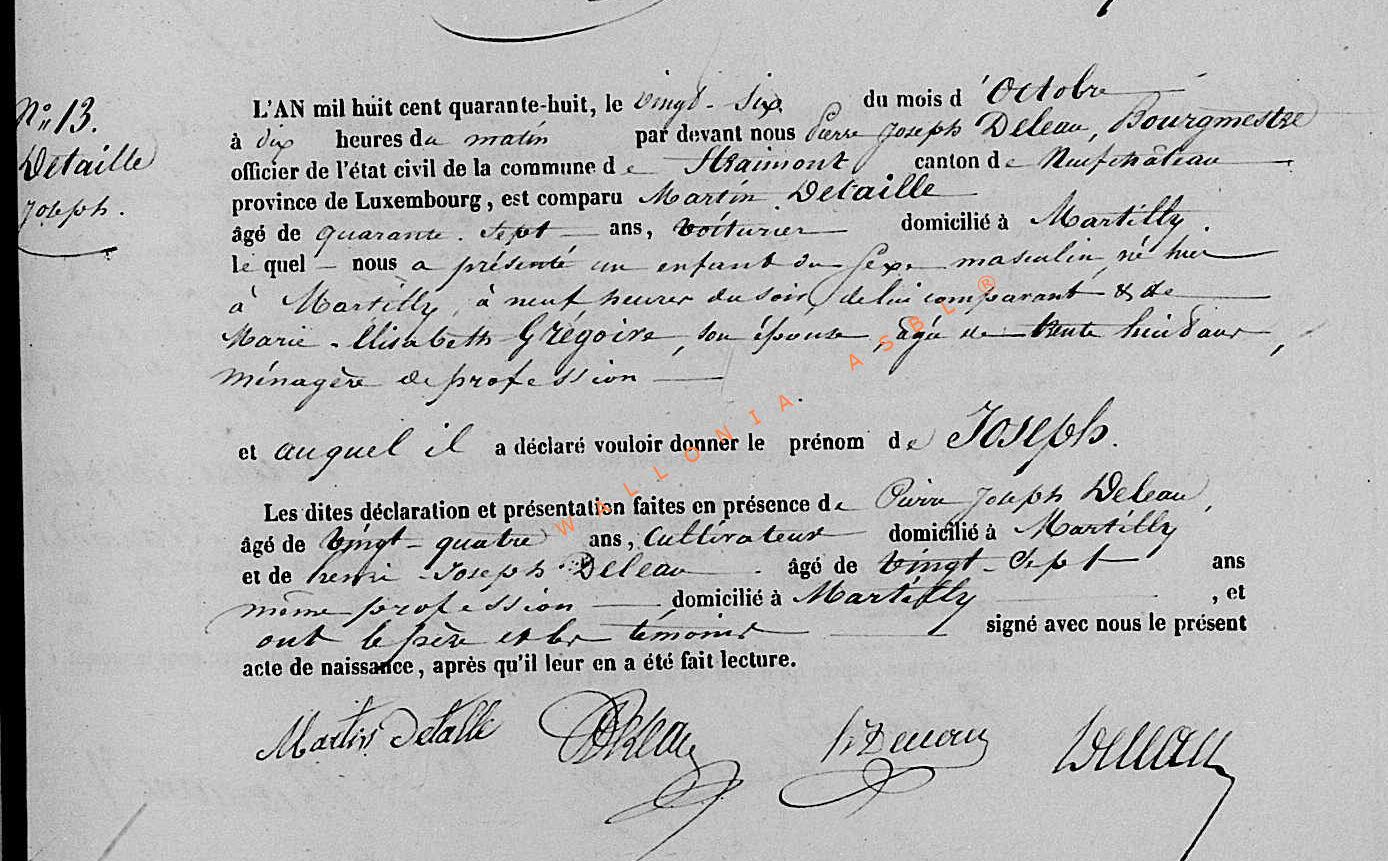 N° 13.
Detaille
Joseph.
L'AN mil huit cent quarante-huit, le vingt-six du mois d'Octobre
à dix heures du matin par devant nous Pierre Joseph Deleau, Bourgmestre
officier de l'état civil de la commune de Straimont canton de Neufchâteau
province de Luxembourg, est comparu Martin Detaille
âgé de quarante-sept ans, voiturier domicilié à Martilly.
le quel nous a présenté un enfant du sexe masculin, né hier
à Martilly, à neuf heures du soir, de lui comparant & de
Marie-Elisabeth Grégoire, son épouse, agée de trente huit ans,
ménagère de profession
et auquel il a déclaré vouloir donner le prénom de Joseph.
Les dites déclaration et présentation faites en présence de Pierre Joseph Deleau,
âgé de vingt-quatre ans, Cultivateur domicilié à Martilly
et de henri-Joseph Deleau âgé de vingt-sept ans
même profession domicilié à Martilly, et
ont le père et les témoins signé avec nous le présent
acte de naissance, après qu'il leur en a été fait lecture.
Martin Detalle Deleau Deleau
WALLONIA ASBL ®